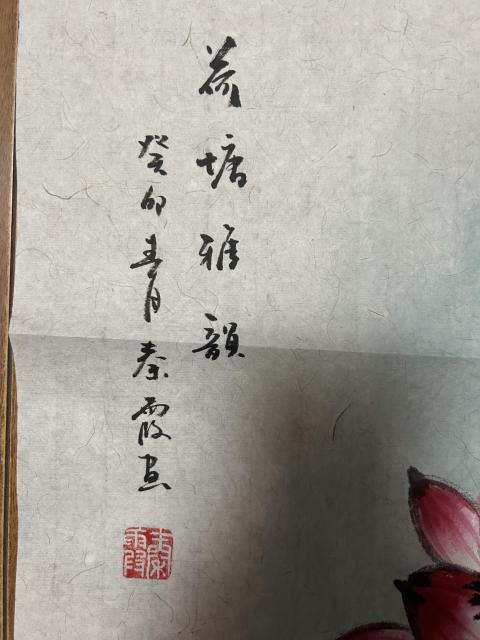 荷塘雅韻
癸卯春月秦霞畫
秦霞